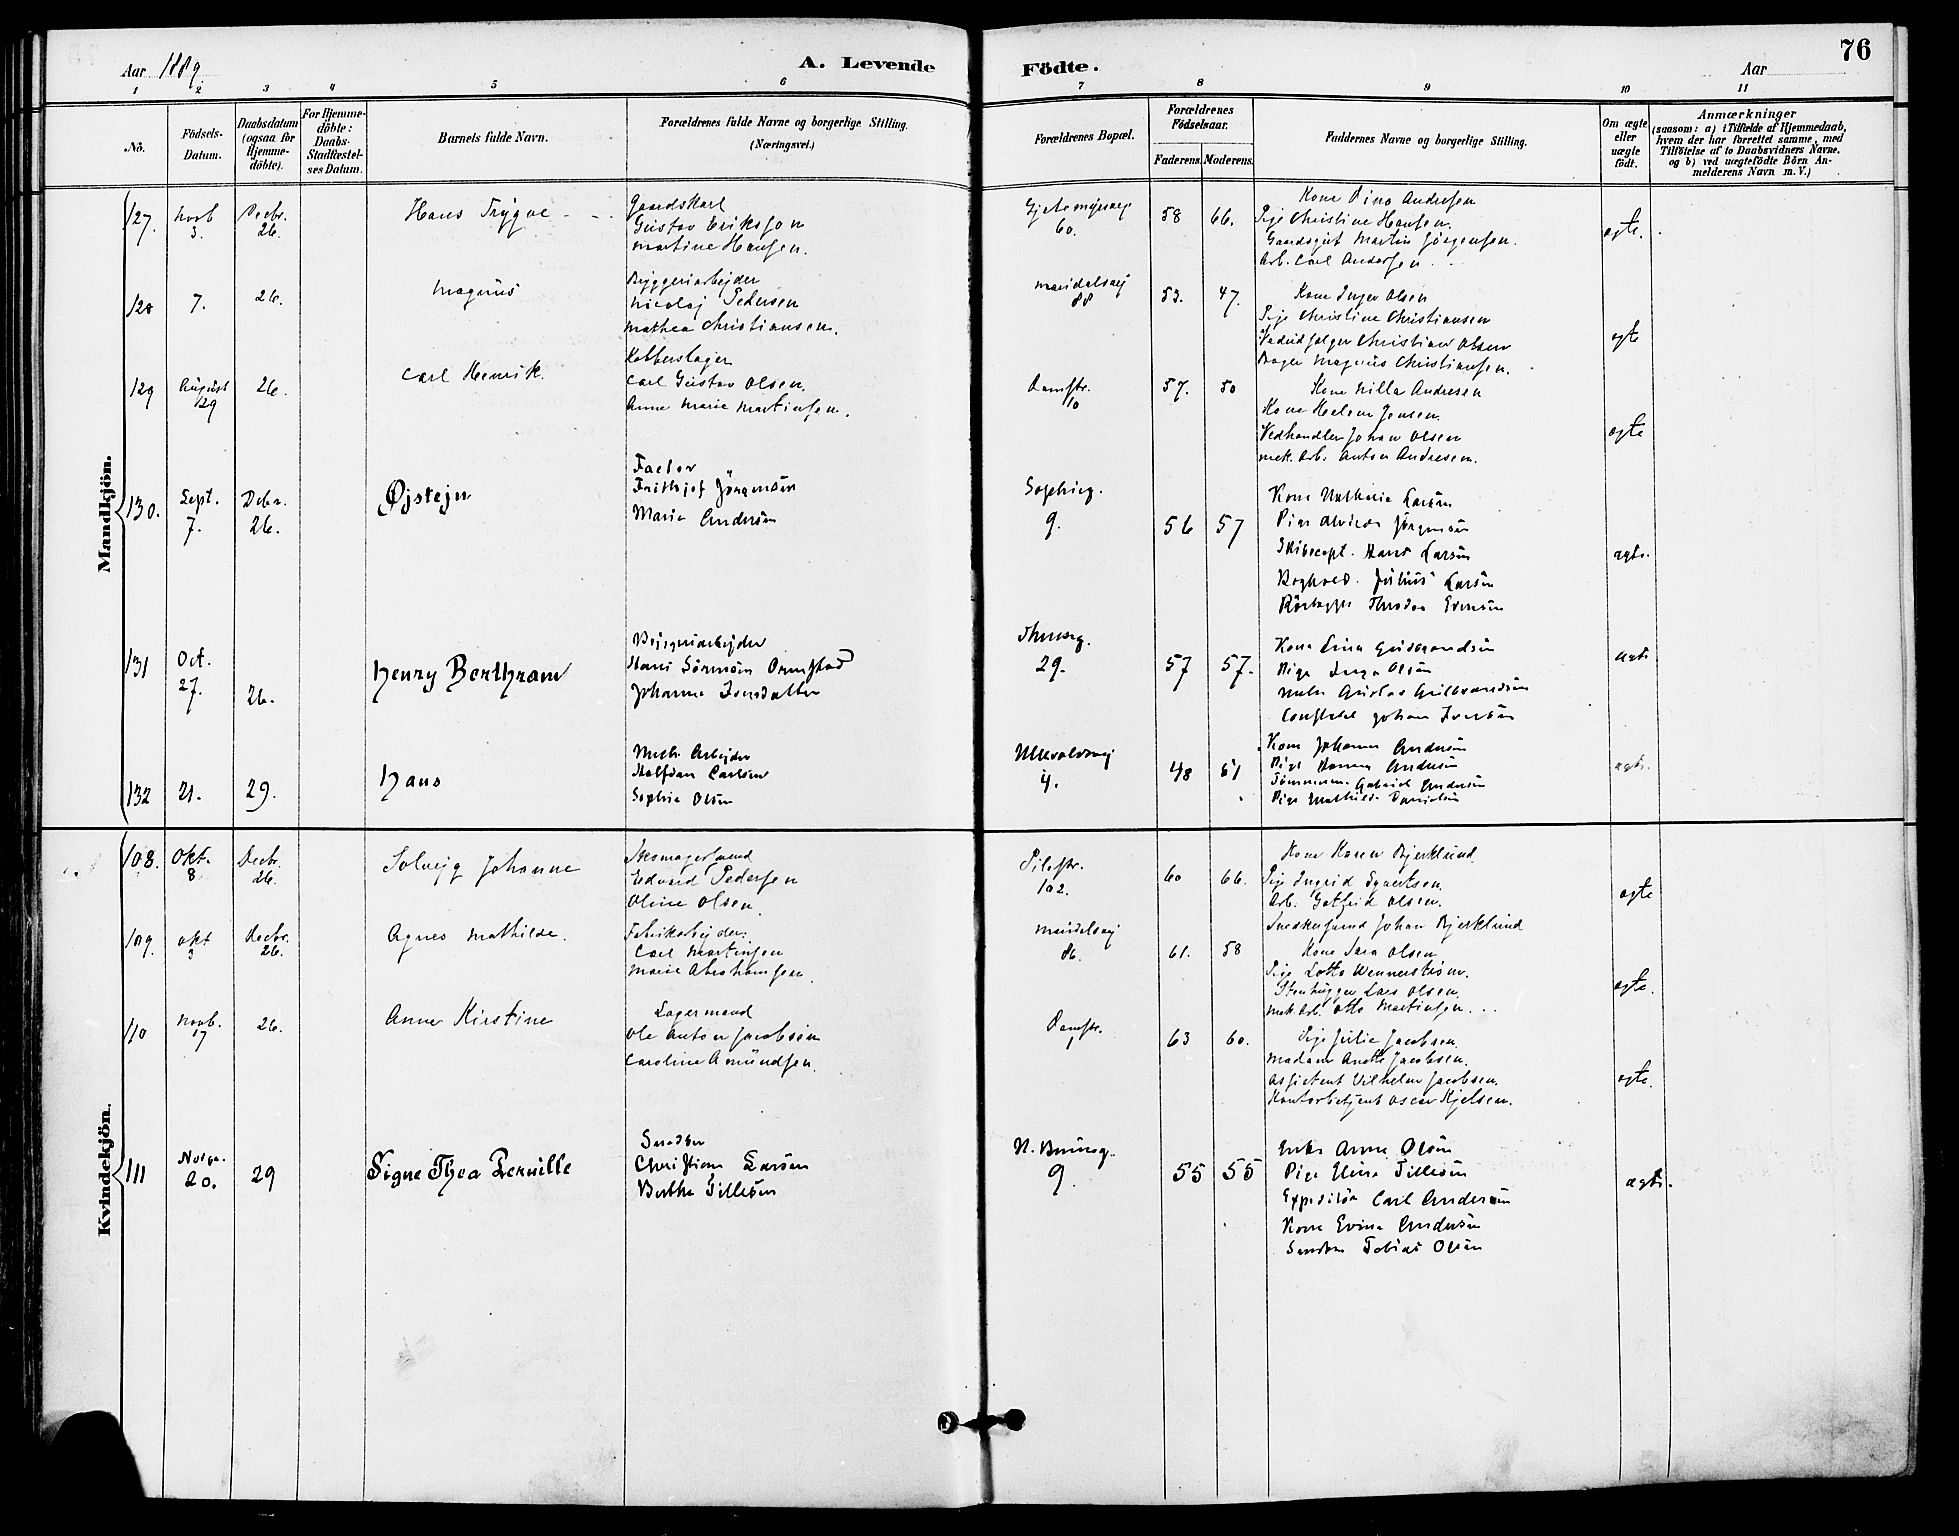 Aar 1889.
A. Levende Födte.
Aar
76
1 2 3 4 5 6 7 8 9 10 11
No.
Födsels-Datum.
Daabsdatum (ogsaa for Hjemme-döbte).
For Hjemme-döbte: Daabs-Stadfæstel-ses Datum.
Barnets fulde Navn.
Forældrenes fulde Navne og borgerlige Stilling. (Næringsvei.)
Forældrenes Bopæl.
Forældrenes Födselsaar.
Faderens. Moderens.
Faddernes Navne og borgerlige Stilling.
Om ægte eller uægte födt.
Anmærkninger
(saasom: a) i Tilfælde af Hjemmedaab,
hvem der har forrettet samme, med
Tilföielse af to Daabsvidners Navne,
og b) ved uægtefödte Börn An-
melderens Navn m. V.)
Mandkjön.
127. Novb 3. Decbr. 26. Hans Trygve
Gaardskarl
Gustav Eriksson
Martine Hansen.
60. 58 66.
Kone Dina Andresen
Pige Christine Hansen.
Gaardsgut Martin Jörgensen.
Arb. Carl Andersen
ægte.
128 7. 26. Magnus
Bryggeriarbejder
Nicolaj Pedersen
Mathea Christiansen.
Maridalsvej 88 53. 47.
Kone Inger Olsen
Pige Christine Christiansen
Christian Olsen
Bager Magnus Christiansen.
ægte
129 August 29 26. Carl Henrik.
Kobberslager
Carl Gustav Olsen.
Anne Marie Martinsen.
Damstr. 10 57. 50
Kone Milla Andresen
Kone Helene Jensen.
Vedhandler Johan Olsen
mek. Arb. Anton Andresen.
ægte
130. Sept. 7. Decbr. 26. Øjstejn
Factor
Frithjof Jörgensen
Marie Andersen
Sophieg. 9. 56 57
Kone Mathilde Larsen
Pige Alvilde Jörgensen
Skibscapt. Hans Larsen
Boghold. Julius Larsen
Thodor Evensen
ægte.
131 Oct. 27. 26. Henry Berthram
Bryggeriarbejder
Hans Sörensen Ormstad
Johanne Iversdatter
29. 57 57.
Kone Lina Gulbrandsen
Pige Inga Olsen
Gulbrandsen
Constabel Johan Iversen
ægte
132 21. 29. Hans
Mek. Arbejder
Halfdan Carlsen
Sophie Olsen
Ullevoldsvej 4. 48 51
Kone Johanne Andersen
Pige Hanna Andersen
Tömmerm. Gabriel Andersen
Pige Mathilde Danielsen
ægte.
Kvindekjön.
108. Okt. 8 Decbr. 26. Solvejg Johanne
Skomagersvend
Edvard Pedersen
Oline Olsen.
Pilestr. 102. 60 66.
Kone Karen Bjerklund
Pige Ingrid Syvertsen.
Arb. Gotfrid Olsen.
Snedkersvend Johan Bjerklund
ægte
109. Okt 3 Decbr. 26. Agnes Mathilde.
Fabrikarbejder
Carl Martinsen
Marie Abrahamsen.
Maridalsvej 86. 61. 58
Kone Sara Olsen
Pige Lotta Wennerström.
Stenhugger Lars Olsen.
mek. Arb. Otto Martinsen.
ægte.
110 Novb. 17 26. Anne Kirstine
Lagermand
Ole Anton Jacobsen
Caroline Amundsen.
Damstr. 1 63 60.
Pige Julie Jacobsen.
Madam Anette Jacobsen.
Assistent Vilhelm Jacobsen.
Kontorbetjent Oscar Kjelsen.
ægte.
111 20. 29 Signe Thea Pernille
Snedker
Christian Larsen
Berthe Tillesen
9. 55 55
Enke Anne Olsen
Pige Elina Tillesen
Expeditör Carl Andersen
Kone Evina Andersen
Snedker Tobias Olsen
ægte.